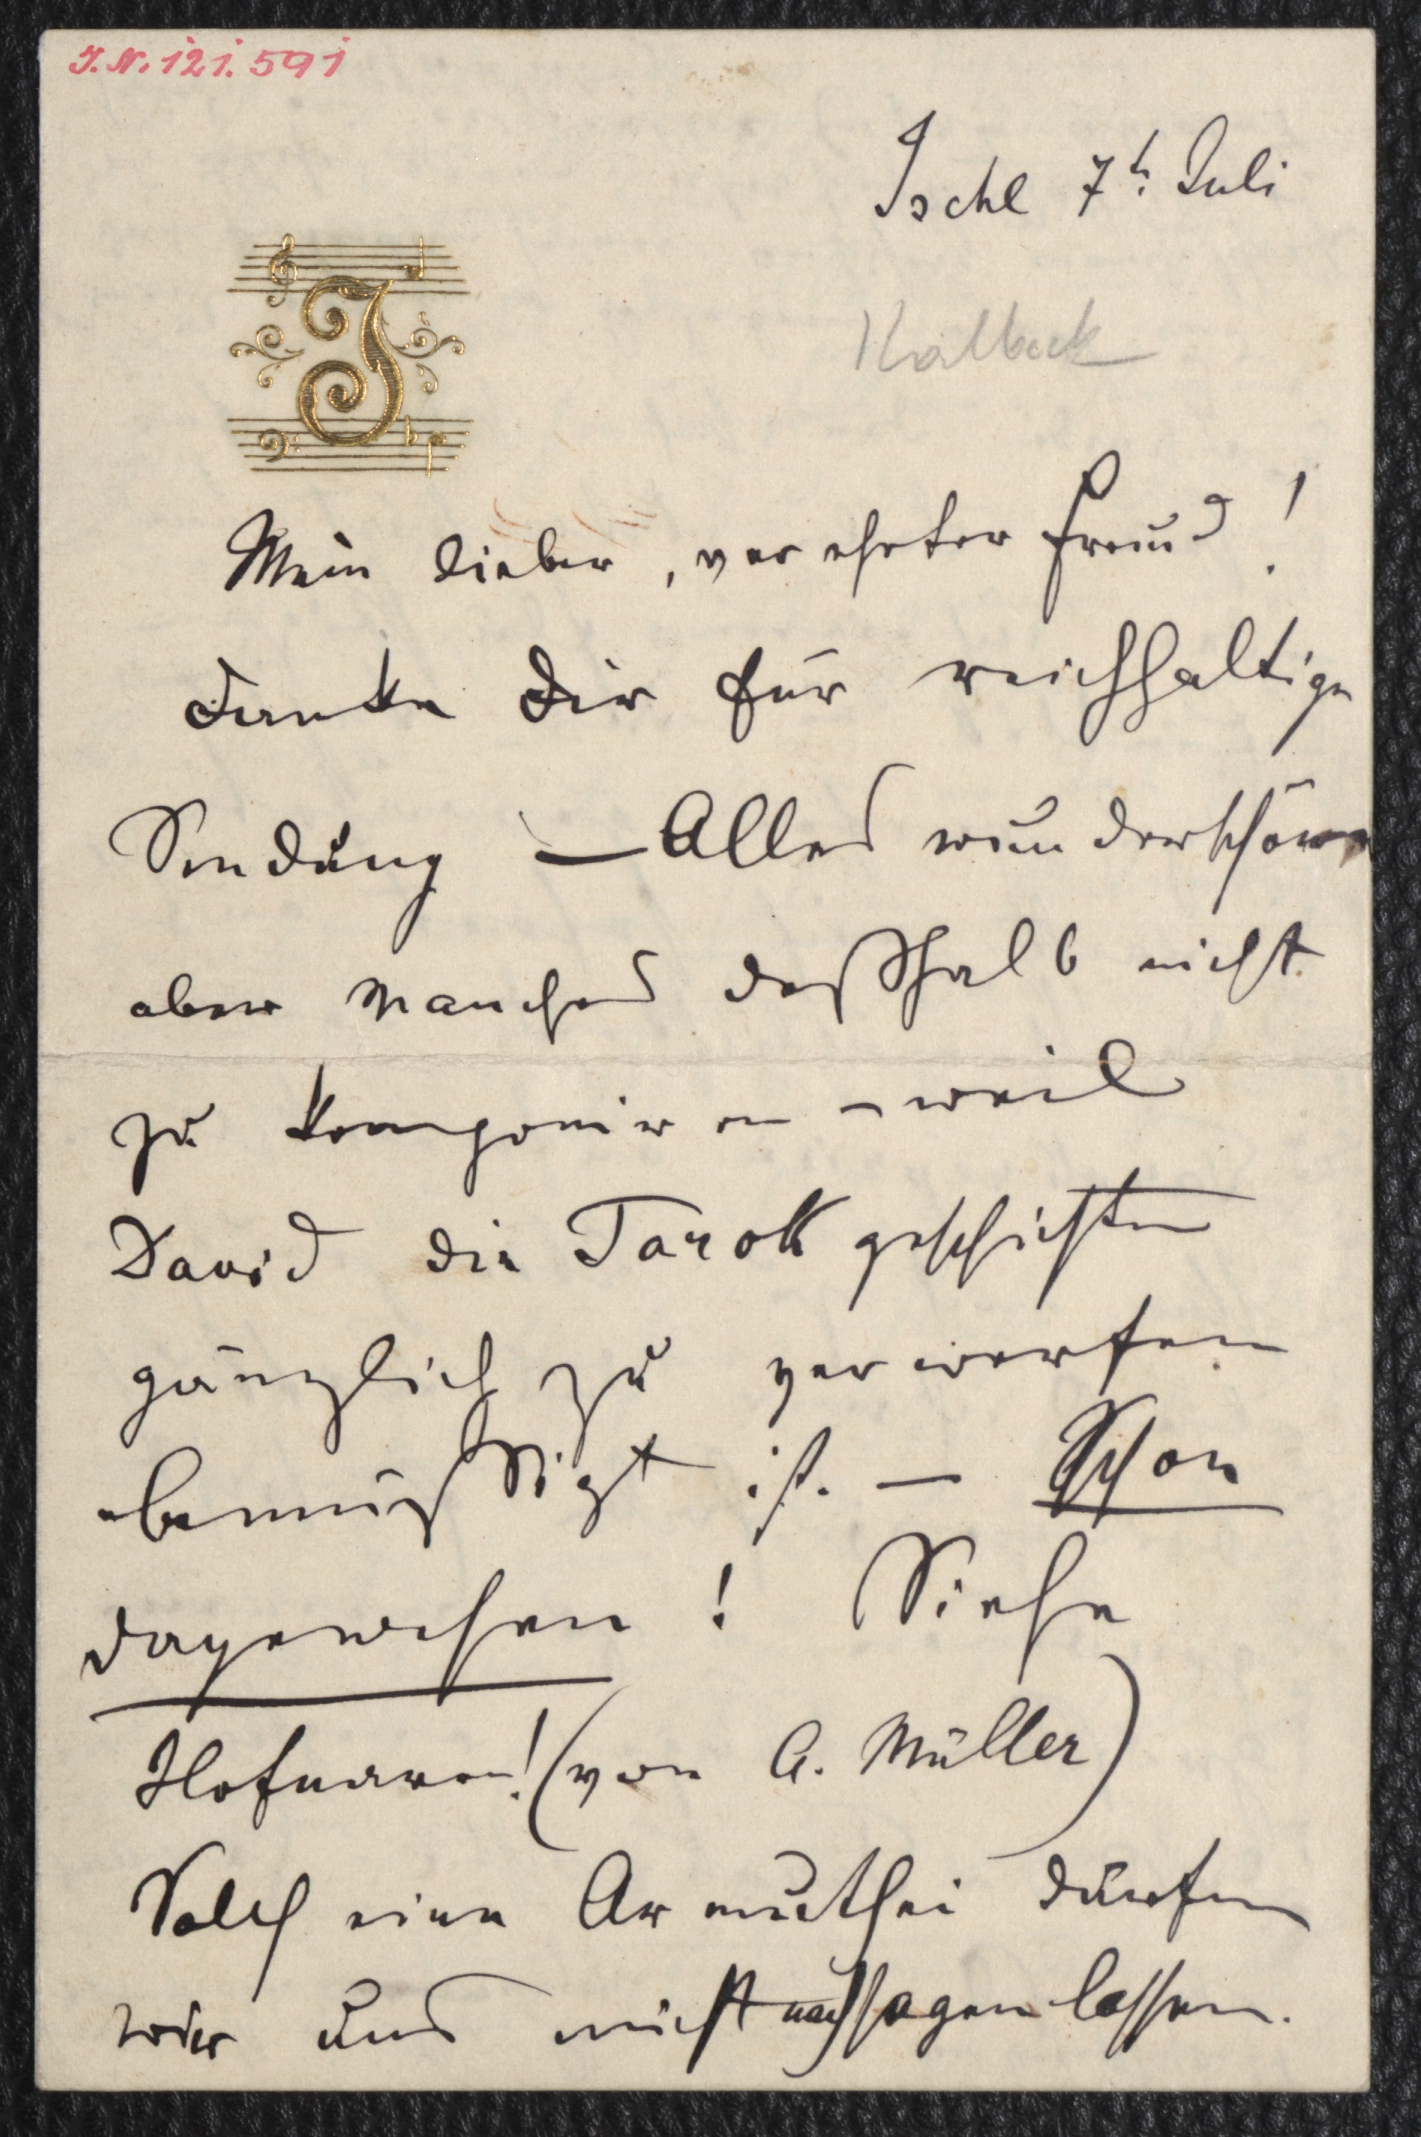 I.N. 121.591
Ischl 7t. Juli
Kalbeck
J
Mein lieber, verehrter Freund!
Danke Dir für reichhaltige
Sendung — Alles wunderschön
aber Manches deßhalb nicht
zu komponiren – weil
David die Tarokgeschichten
gänzlich zu verwerfen
bemüssigt ist. — Schon
dagewesen! Siehe
Hofnaren! (von A. Müller)
Solch eine Armuthei dürfen
wir uns nicht nachsagen lassen.